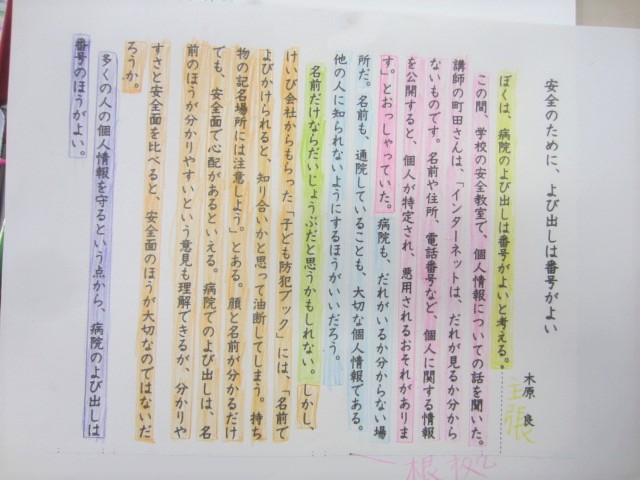 安全のために、よび出しは番号がよい
木原　良
主張
ぼくは、病院のよび出しは番号がよいと考える。
この間、学校の安全教室で、個人情報についての話を聞いた。
講師の町田さんは、「インターネットは、だれが見るか分から
ないものです。名前や住所、電話番号など、個人に関する情報
を公開すると、個人が特定され、悪用されるおそれがありま
す」とおっしゃっていた。病院も、だれがいるか分からない場
所だ。名前も、通院していることも、大切な個人情報である。
他の人に知られないようにするほうがいいだろう。
名前だけならだいじょうぶだと思うかもしれない。しかし、
けいび会社からもらった「子ども防犯ブック」には、「名前で
よびかけられると、知り合いかと思って油断してしまう。持ち
物の記名場所には注意しよう。」とある。顔と名前が分かるだけ
でも、安全面で心配があるといえる。病院でのよび出しは、名
前のほうが分かりやすいという意見も理解できるが、分かりや
すさと安全面を比べると、安全面のほうが大切なのではないだ
ろうか。
多くの人の個人情報を守るという点から、病院のよび出しは
番号のほうがよい。
根拠